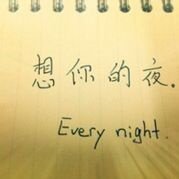 想你的夜.
Every night.